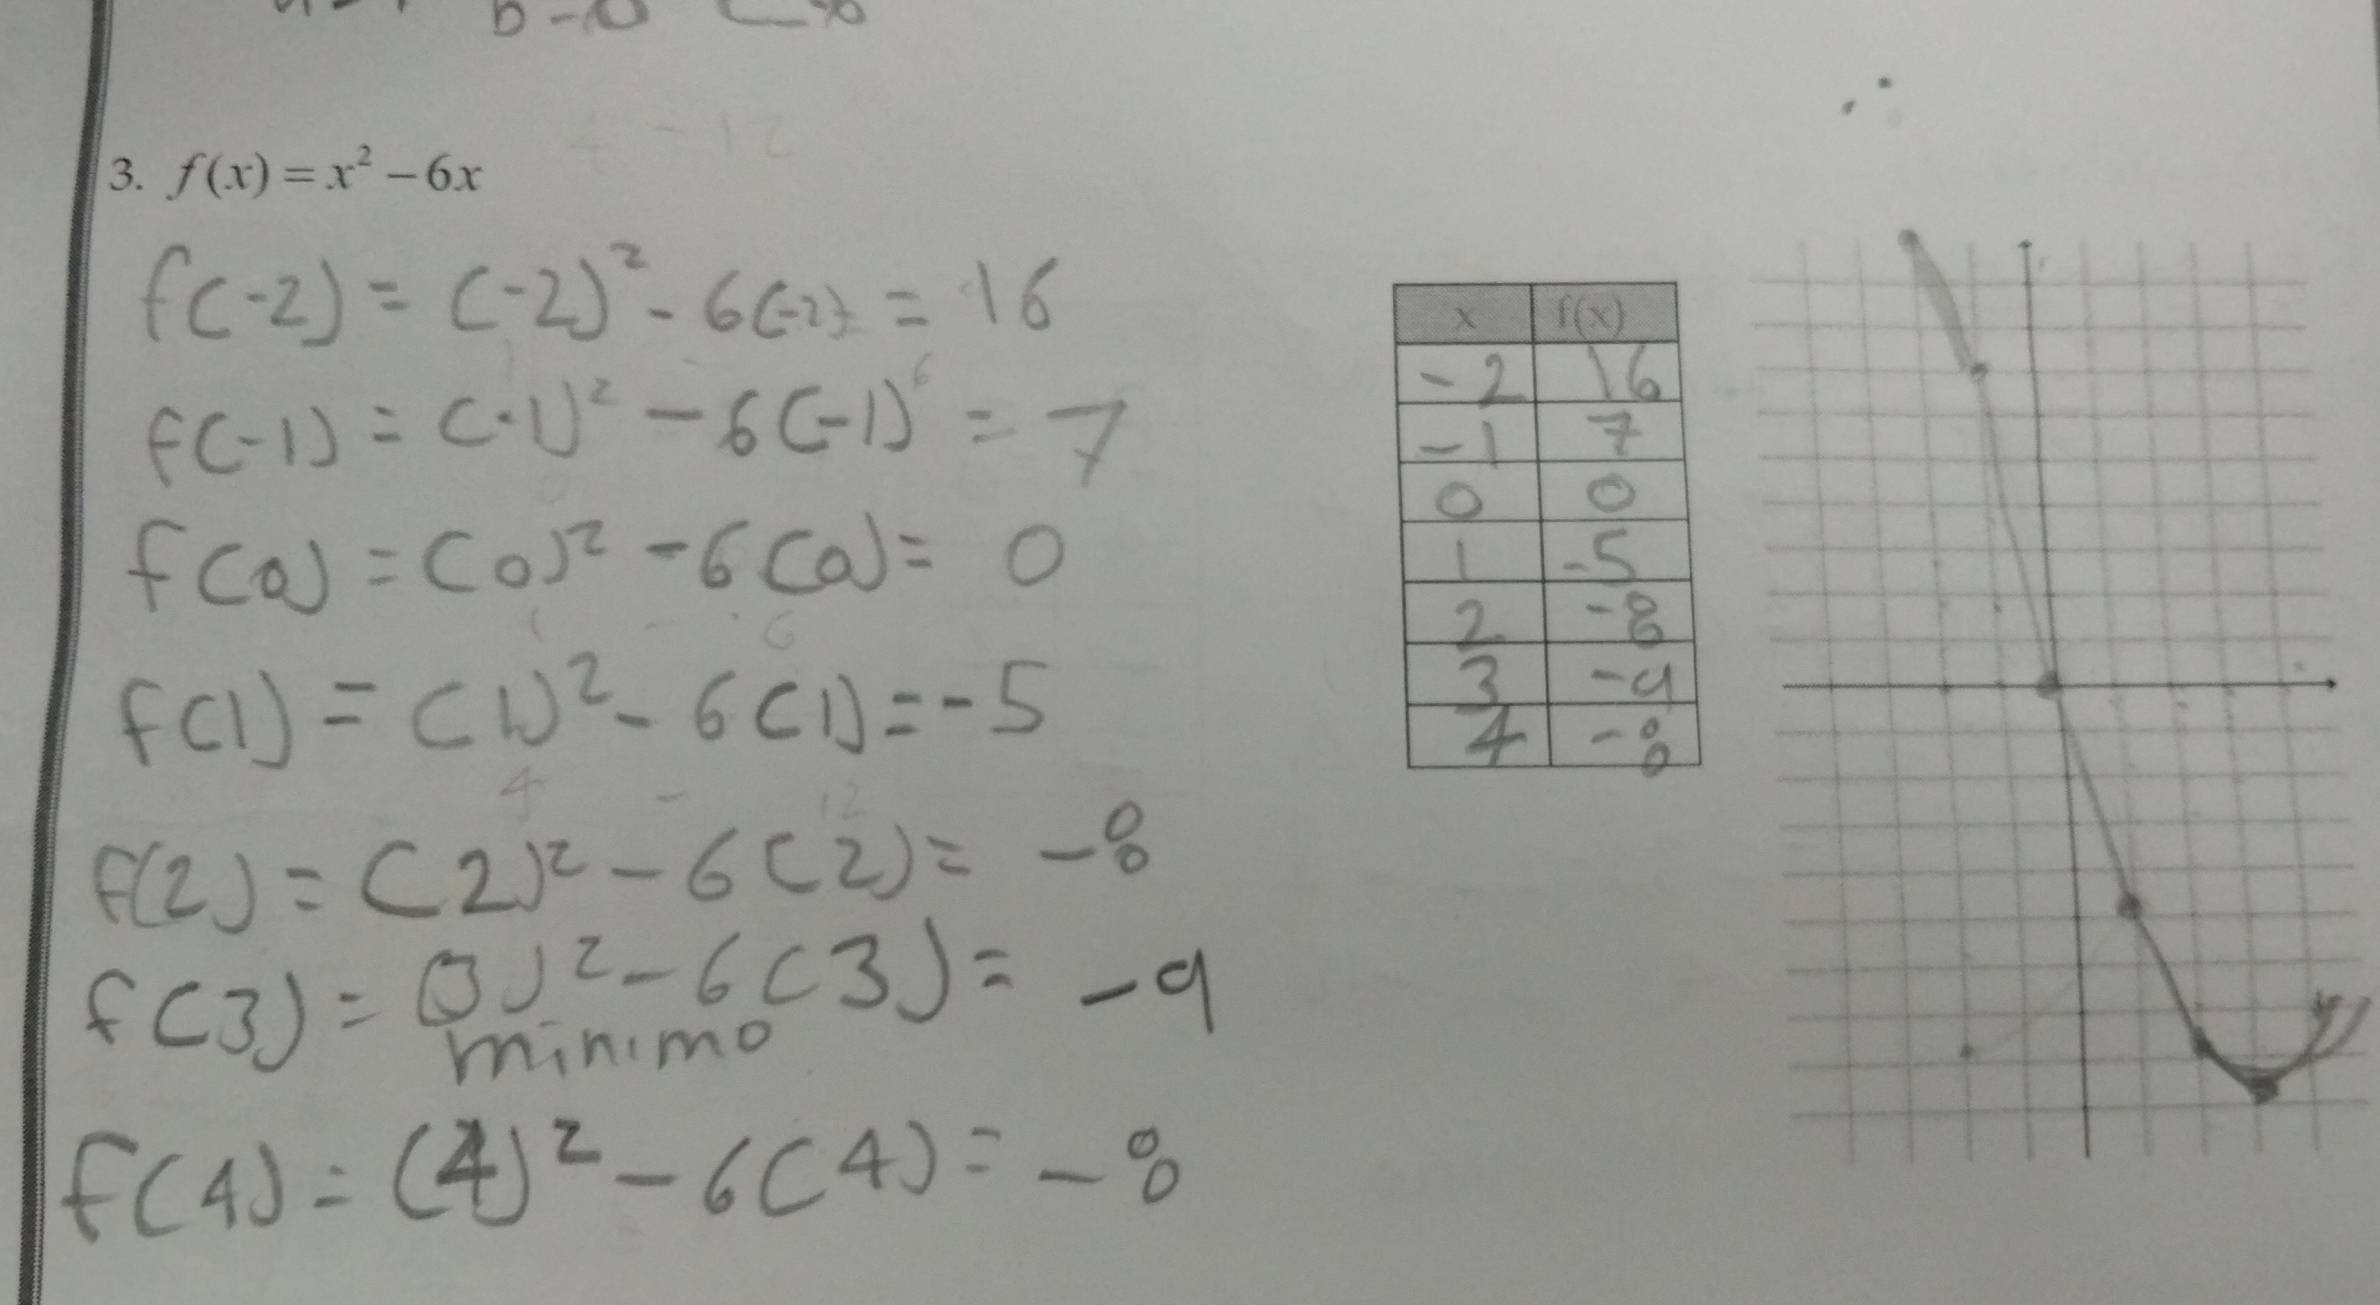 3. f(x) = x² − 6x
f(-2) = (-2)² - 6(-2) = 16
f(-1) = (-1)² - 6(-1) = 7
f(0) = (0)² - 6(0) = 0
f(1) = (1)² - 6(1) = -5
f(2) = (2)² - 6(2) = -8
f(3) = (3)² - 6(3) = -9
minimo
f(4) = (4)² - 6(4) = -8
x f(x)
-2 16
-1 7
0 0
1 -5
2 -8
3 -9
4 -8